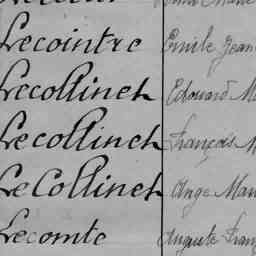 Lecointre Emile Jean
Lecollinet Edouard M
Lecollinet François M
LeCollinet Ange Mari
Lecomte Auguste Fran